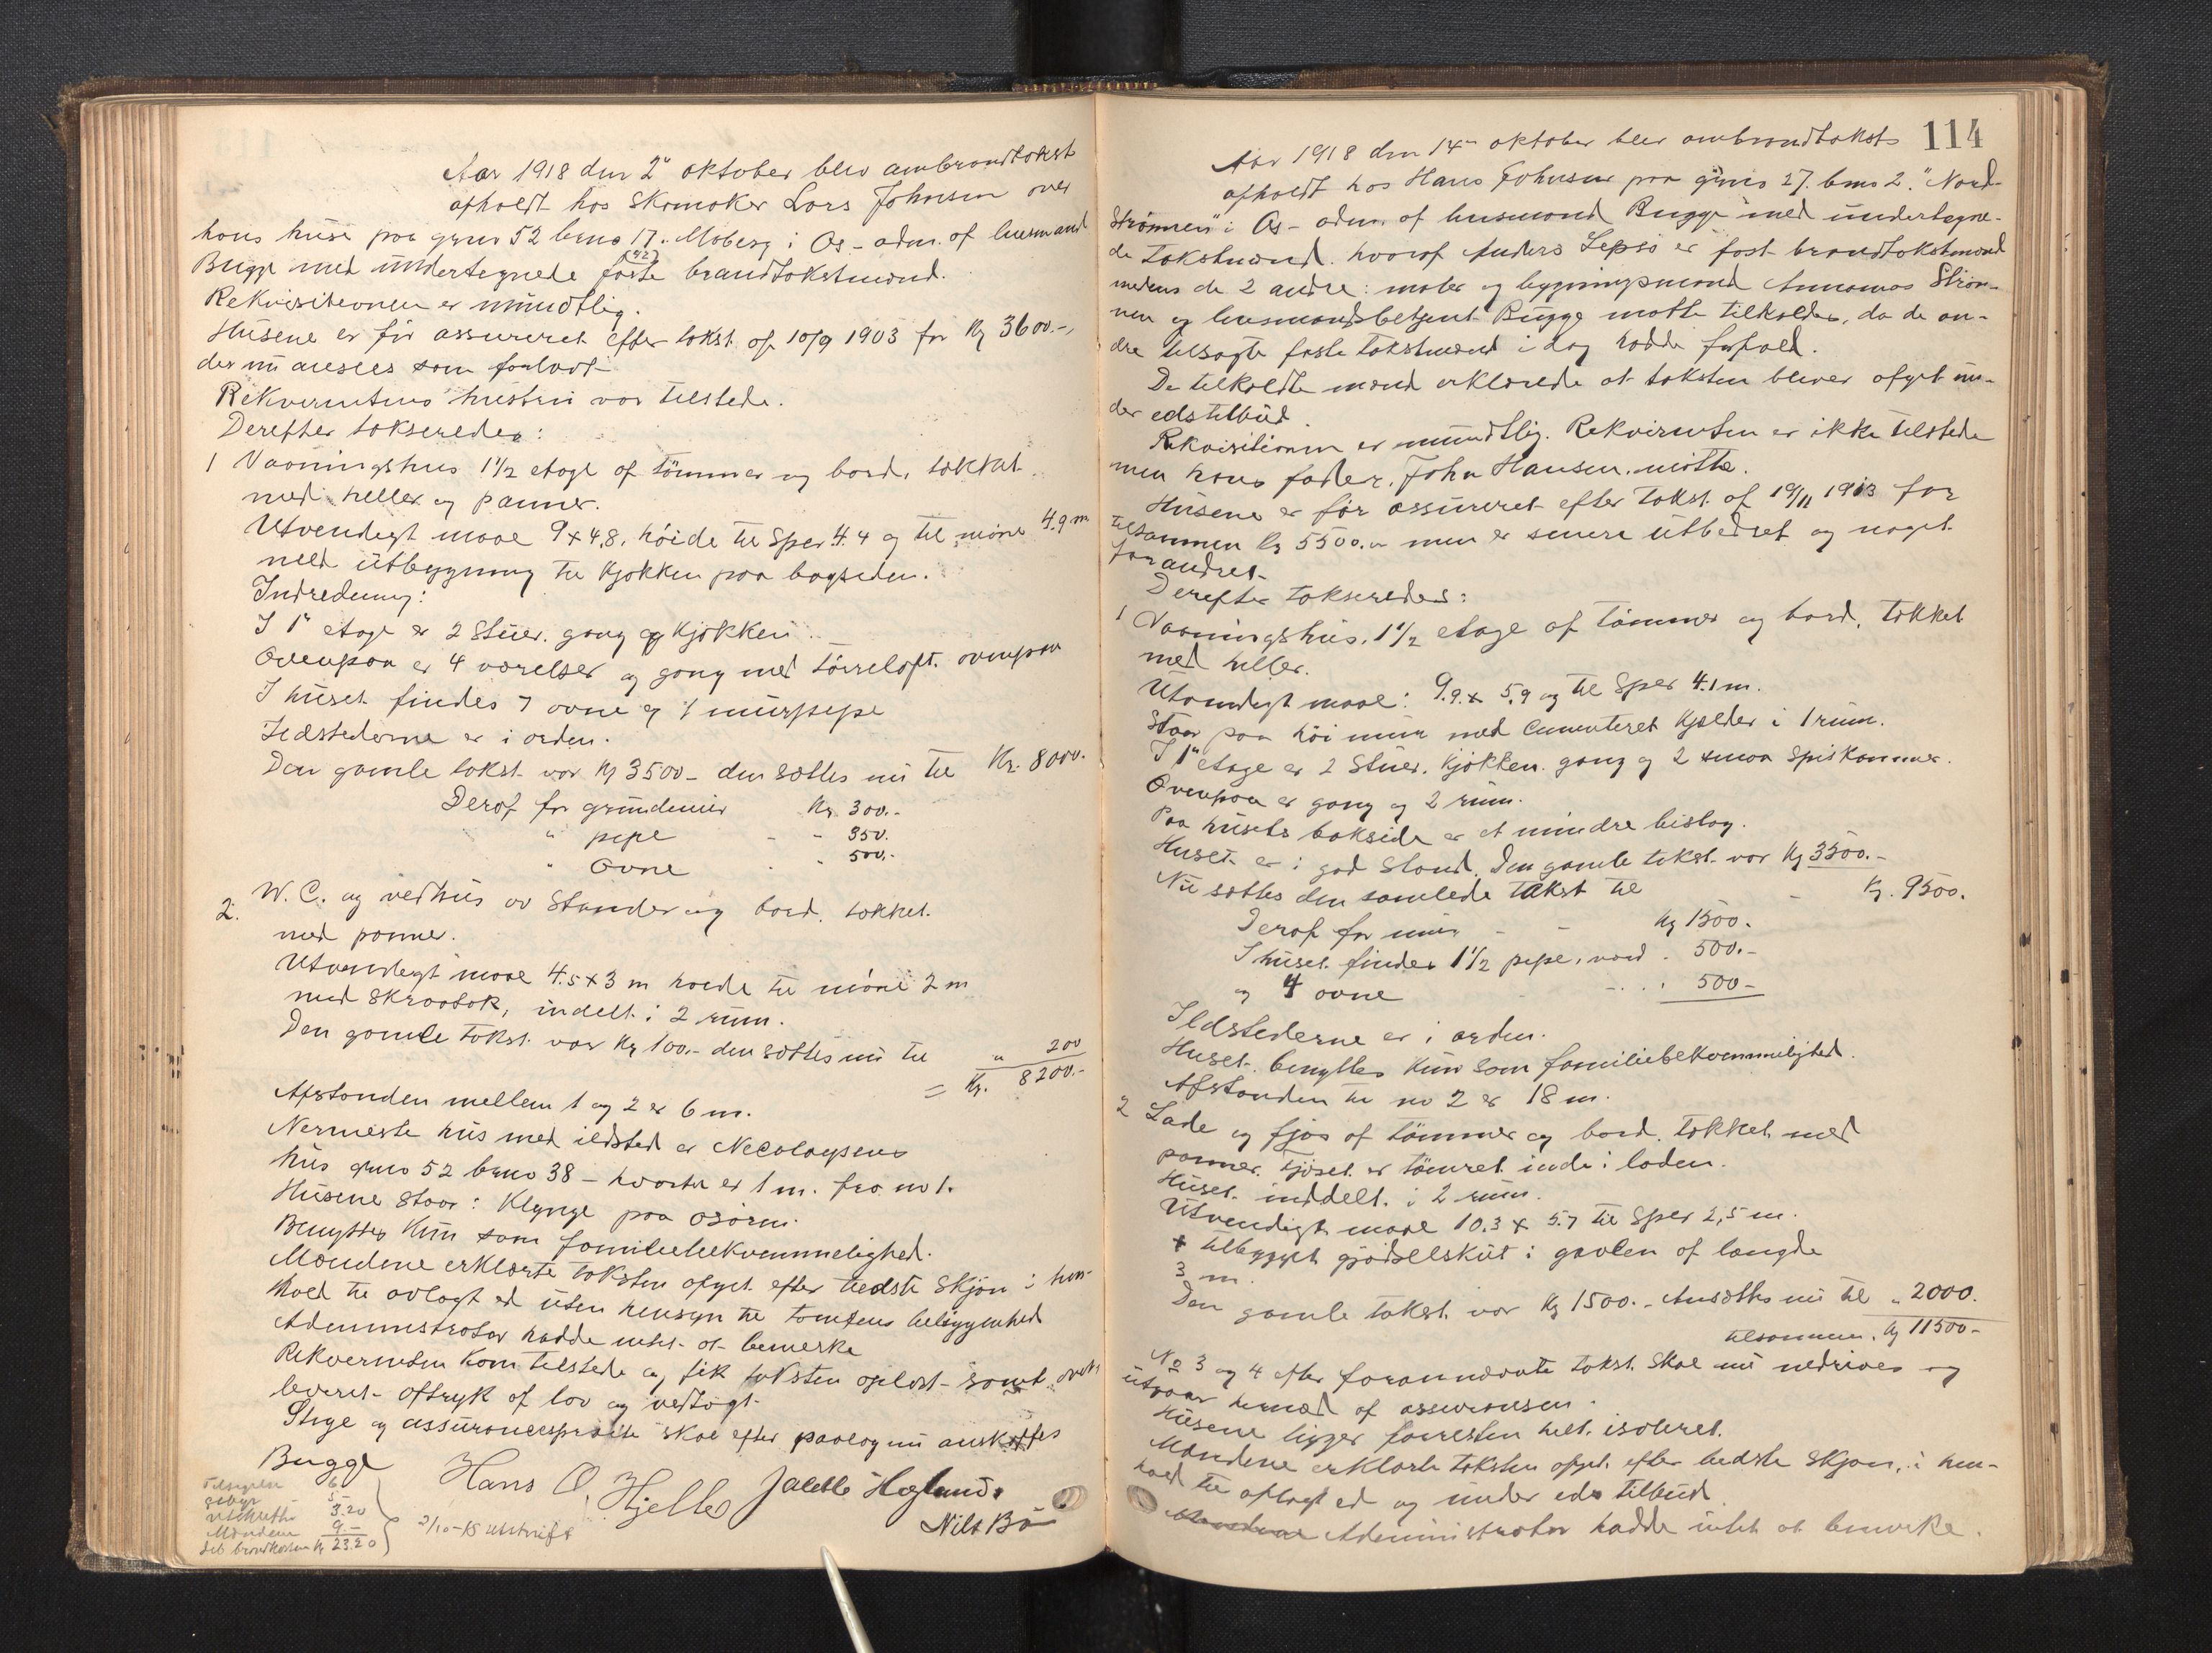 Aar 1918 den 2" oktober blev ombrandtakst
afholdt hos Skomaker Lars Johnsen over
hans huse paa gnrs 52 brno 17. Moberg i Os - adm. af lensmand
Bugge med undertegnede faste brandtakstmænd.
Rekvisitionen er mundtlig.
Husene er før assureret efter takst af 10/9 1903 for Kr 3600.-,
der nu ansees som forladt
Rekvirentens hustru var tilstede.
Derefter takseredes:
1 Vaaningshus 1 1/2 etage af tømmer og bord, tækket
med heller og panner.
Utvendigt maal 9 x 4,8, høide til Sper 4.4 og til møne 4.9 m
med utbygning til Kjøkken paa bagsiden.
Indredning:
I 1" etage er 2 Stuer, gang og Kjøkken.
Ovenpaa er 4 værelser og gang med tørreloft ovenpaa
I huset findes 7 ovne og 1 murpipe
Ildstederne er i orden.
Den gamle takst var Kr 3500 - den sættes nu til Kr. 8000.-
Deraf for grundmur Kr. 300.-
" pipe - - 350.
" Ovne " " 500.-
2. W.C. og vedhus av Stender og bord, tækket
med panner.
Utvendigt maal 4.5 x 3 m høide til møne 2 m
med Skraatak, indelt i 2 rum.
Den gamle takst var Kr 100.- den sættes nu til " 200
= Kr. 8200.-
Afstanden mellem 1 og 2 er 6 m.
Nermeste hus med ildsted er Necolaysens
hus gnrs 52 brno 38 - hvortil er 1 m. fra no 1.
Husene Staar i Klynge paa Osøren.
Benyttes Kun som familiebekvemmelighed.
Mændene erklærte taksten afgit efter bedste Skjøn i hen-
hold til avlagt ed uten hensyn til tomtens beliggenhed
Administrator hadde intet at bemerke
Rekvirenten kom tilstede og fik taksten oplæst - samt over-
leveret aftryk af lov og vedtægt.
Stige og assurancesprøite skal efter paalæg nu anskaffes
Bugge
Hans O. Hjelle Jacob Høglund.
Nils Bø
2/10-18 Utskrift
Tilsigelse 6
gebyr 5-
Utskrift 3.20
Mændene 9.-
deb. brandkassen Kr 23.20
114
Aar 1918 den 14" oktober blev ombrandtakst
afholdt hos Hans Johnsen paa gnrs 27. brno 2. "Nord-
Strønnen" i Os - adm. af lensmand Bugge med undertegne-
de takstmænd, hvoraf Anders Lepsø er fast brandtakstmand
medens de 2 andre: maler og bygningsmand Ammamas Strøn-
nen og lensmandsbetjent Bugge maatte tilkaldes, da de an-
dre tilsagte faste takstmænd i dag hadde forfald.
De tilkaldte mænd erklærede at taksten bliver afgit un-
der edstilbud.
Rekvisitionen er mundtlig. Rekvirenten er ikke tilstede
men hans fader, John Hansen, møtte.
Husene er før assureret efter takst af 19/11 1913 for
tilsammen Kr 5500.- men er senere utbedret og noget
forandret.
Derefter takseredes:
1 Vaaningshus, 1 1/2 etage af tømmer og bord, tækket
med heller.
Utvendigt maal: 9.9. x 5,9 og til Sper 4.1 m.
Staar paa høi mur med Cementeret Kjælder i 1 rum.
I 1" etage er 2 Stuer, Kjøkken, gang og 2 smaa Spiskammer.
Ovenpaa er gang og 2 rum.
Paa husets bakside er et mindre bislag.
Huset er i god Stand. Den gamle takst var Kr 3500.-
Nu sættes den samlede takst til - Kr. 9500.
Deraf for mur - - Kr 1500.
I huset findes 1 1/2 pipe, værd . 500.-
og 4 ovne - . . . 500 -
Ildstederne er i orden.
Huset benyttes Kun som familiebekvemmelighed.
Afstanden til no 2 er 18 m.
2 Lade og fjøs af tømmer og bord, tækket med
panner. Fjøset er tømret inde i laden.
Huset inddelt i 2 rum.
Utvendigt maal 10.3 x 5.7 til Sper 2,5 m.
+ tilbygget gjødselskut i gavlen af længde
3 m.
Den gamle takst var Kr 1500.- Ansættes nu til " 2000.
tilsammen Kr 11500 -
No 3 og 4 efter forannævnte takst skal nu nedrives og
utgaar hermed af assurancen.
Husene ligger forresten helt isoleret.
Mændene erklærte taksten afgit efter bedste Skjøn, i hen-
hold til aflagt ed og under eds tilbud.
Mændene Administrator hadde intet at bemerke.